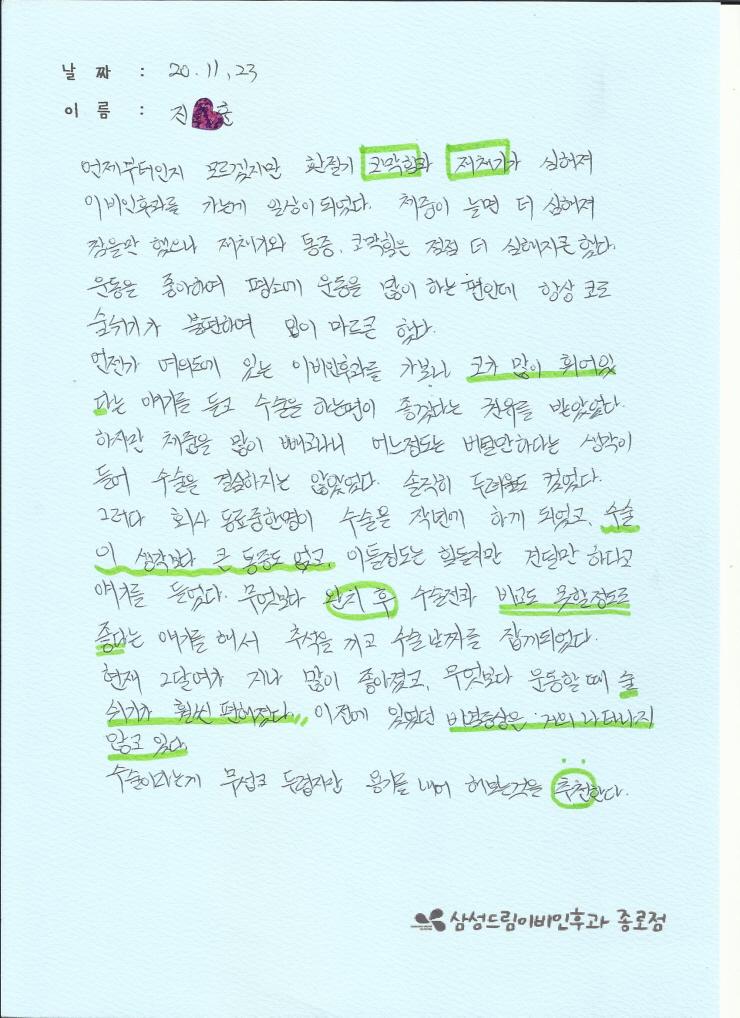 날 짜 : 20.11.23
이 름 : 진 훈
언제부터인지 모르겠지만 환절기 코막힘과 재채기가 심해져
이비인후과를 가는게 일상이 되었다. 체중이 늘면 더 심해져
잠을만 했으나 재채기와 통증, 코막힘은 점점 더 심해지곤 했다.
운동을 좋아하여 평소에 운동을 많이 하는 편인데 항상 코로
숨쉬기가 불편하여 입이 마르곤 했다.
언젠가 여의도에 있는 이비인후과를 가보니 코가 많이 휘어있
다는 얘기를 듣고 수술을 하는편이 좋겠다는 권유를 받았었다.
하지만 체중을 많이 빼고나니 어느정도는 버틸만하다는 생각이
들어 수술을 결심하지는 않았었다. 솔직히 두려움도 컸었다.
그러다 회사 동료중한명이 수술을 작년에 하게 되었고, 수술
이 생각보다 큰 통증도 없고, 이틀정도는 힘들지만 견딜만 하다고
얘기를 들었다. 무엇보다 완치 후 수술전과 비교도 못할정도로
좋다는 얘기를 해서 추석을 끼고 수술날짜를 잡게되었다.
현재 2달여가 지나 많이 좋아졌고, 무엇보다 운동할 때 숨
쉬기가 훨씬 편해졌다. 이전에 있었던 비염증상은 거의 나타나지
않고 있다.
수술이라는게 무섭고 두렵지만 용기를 내어 해보는것을 추천한다.
삼성드림이비인후과 종로점